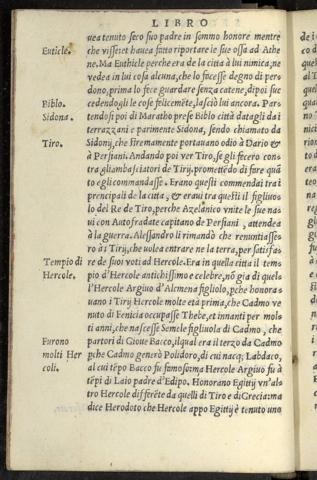 LIBRO
uea tenuto seco suo padre in sommo honore mentre
Euticle. che uisse: et hauea fatto riportare le sue ossa ad Athe
ne. Ma Euthicle perche era de la citta à lui nimica, ne
uedea in lui cosa alcuna, che lo facesse degno di per‐
dono, prima lo fece guardare senza catene, dipoi suc
Biblo. cedendogli le cose felicemẽte, lasciò lui ancora. Par‐
Sidona. tendosi poi di Maratho prese Biblo città datagli da i
terrazzani e parimente Sidona, sendo chiamato da
Sidonij, che stremamente portauano odio à Dario &
Tiro. à Persiani. Andando poi ver Tiro, se gli fecero con‐
tra gli ambasciatori de Tirij, promettẽdo di fare quã
to egli commandasse. Erano questi commendai tra i
prencipali de la citta, & eraui tra questi il figliuo‐
lo del Re de Tiro, perche Azelmico vnite le sue na‐
ui con Autofradate capitano de Persiani, attendea
à la guerra. Alessandro li rimandò che renuntiasse‐
ro às Tirij, che uolea entrare ne la terra, per satisfas
Tempio di re de suoi voti ad Hercole. Era in quella citta il tem‐
Hercole. pio d'Hercole antichissimo e celebre, nõ gia di quelo
l'Hercole Argiuo d'Alcmena figliolo, pche honora‐
uano i Tirij Hercole molte età prima, che Cadmo ve
nuto di Fenicia occupasse Thebe, et innanti per mol‐
ti anni, che nascesse Semele figliuola di Cadmo, che
Furono partori di Gioue Bacco, il qual era il terzo da Cadmo
molti Her pche Cadmo generò Polidoro, di cui nacq; Labdaco,
coli. al cui tẽpo Bacco fu famoso: ma Hercole Argiuo fu à
tẽpi di Laio padre d'Edipo. Honorano Egittij vn'al‐
tro Hercole differẽte da quelli di Tiro e di Grecia: ma
dice Herodoto che Hercole appo Egittij è tenuto uno